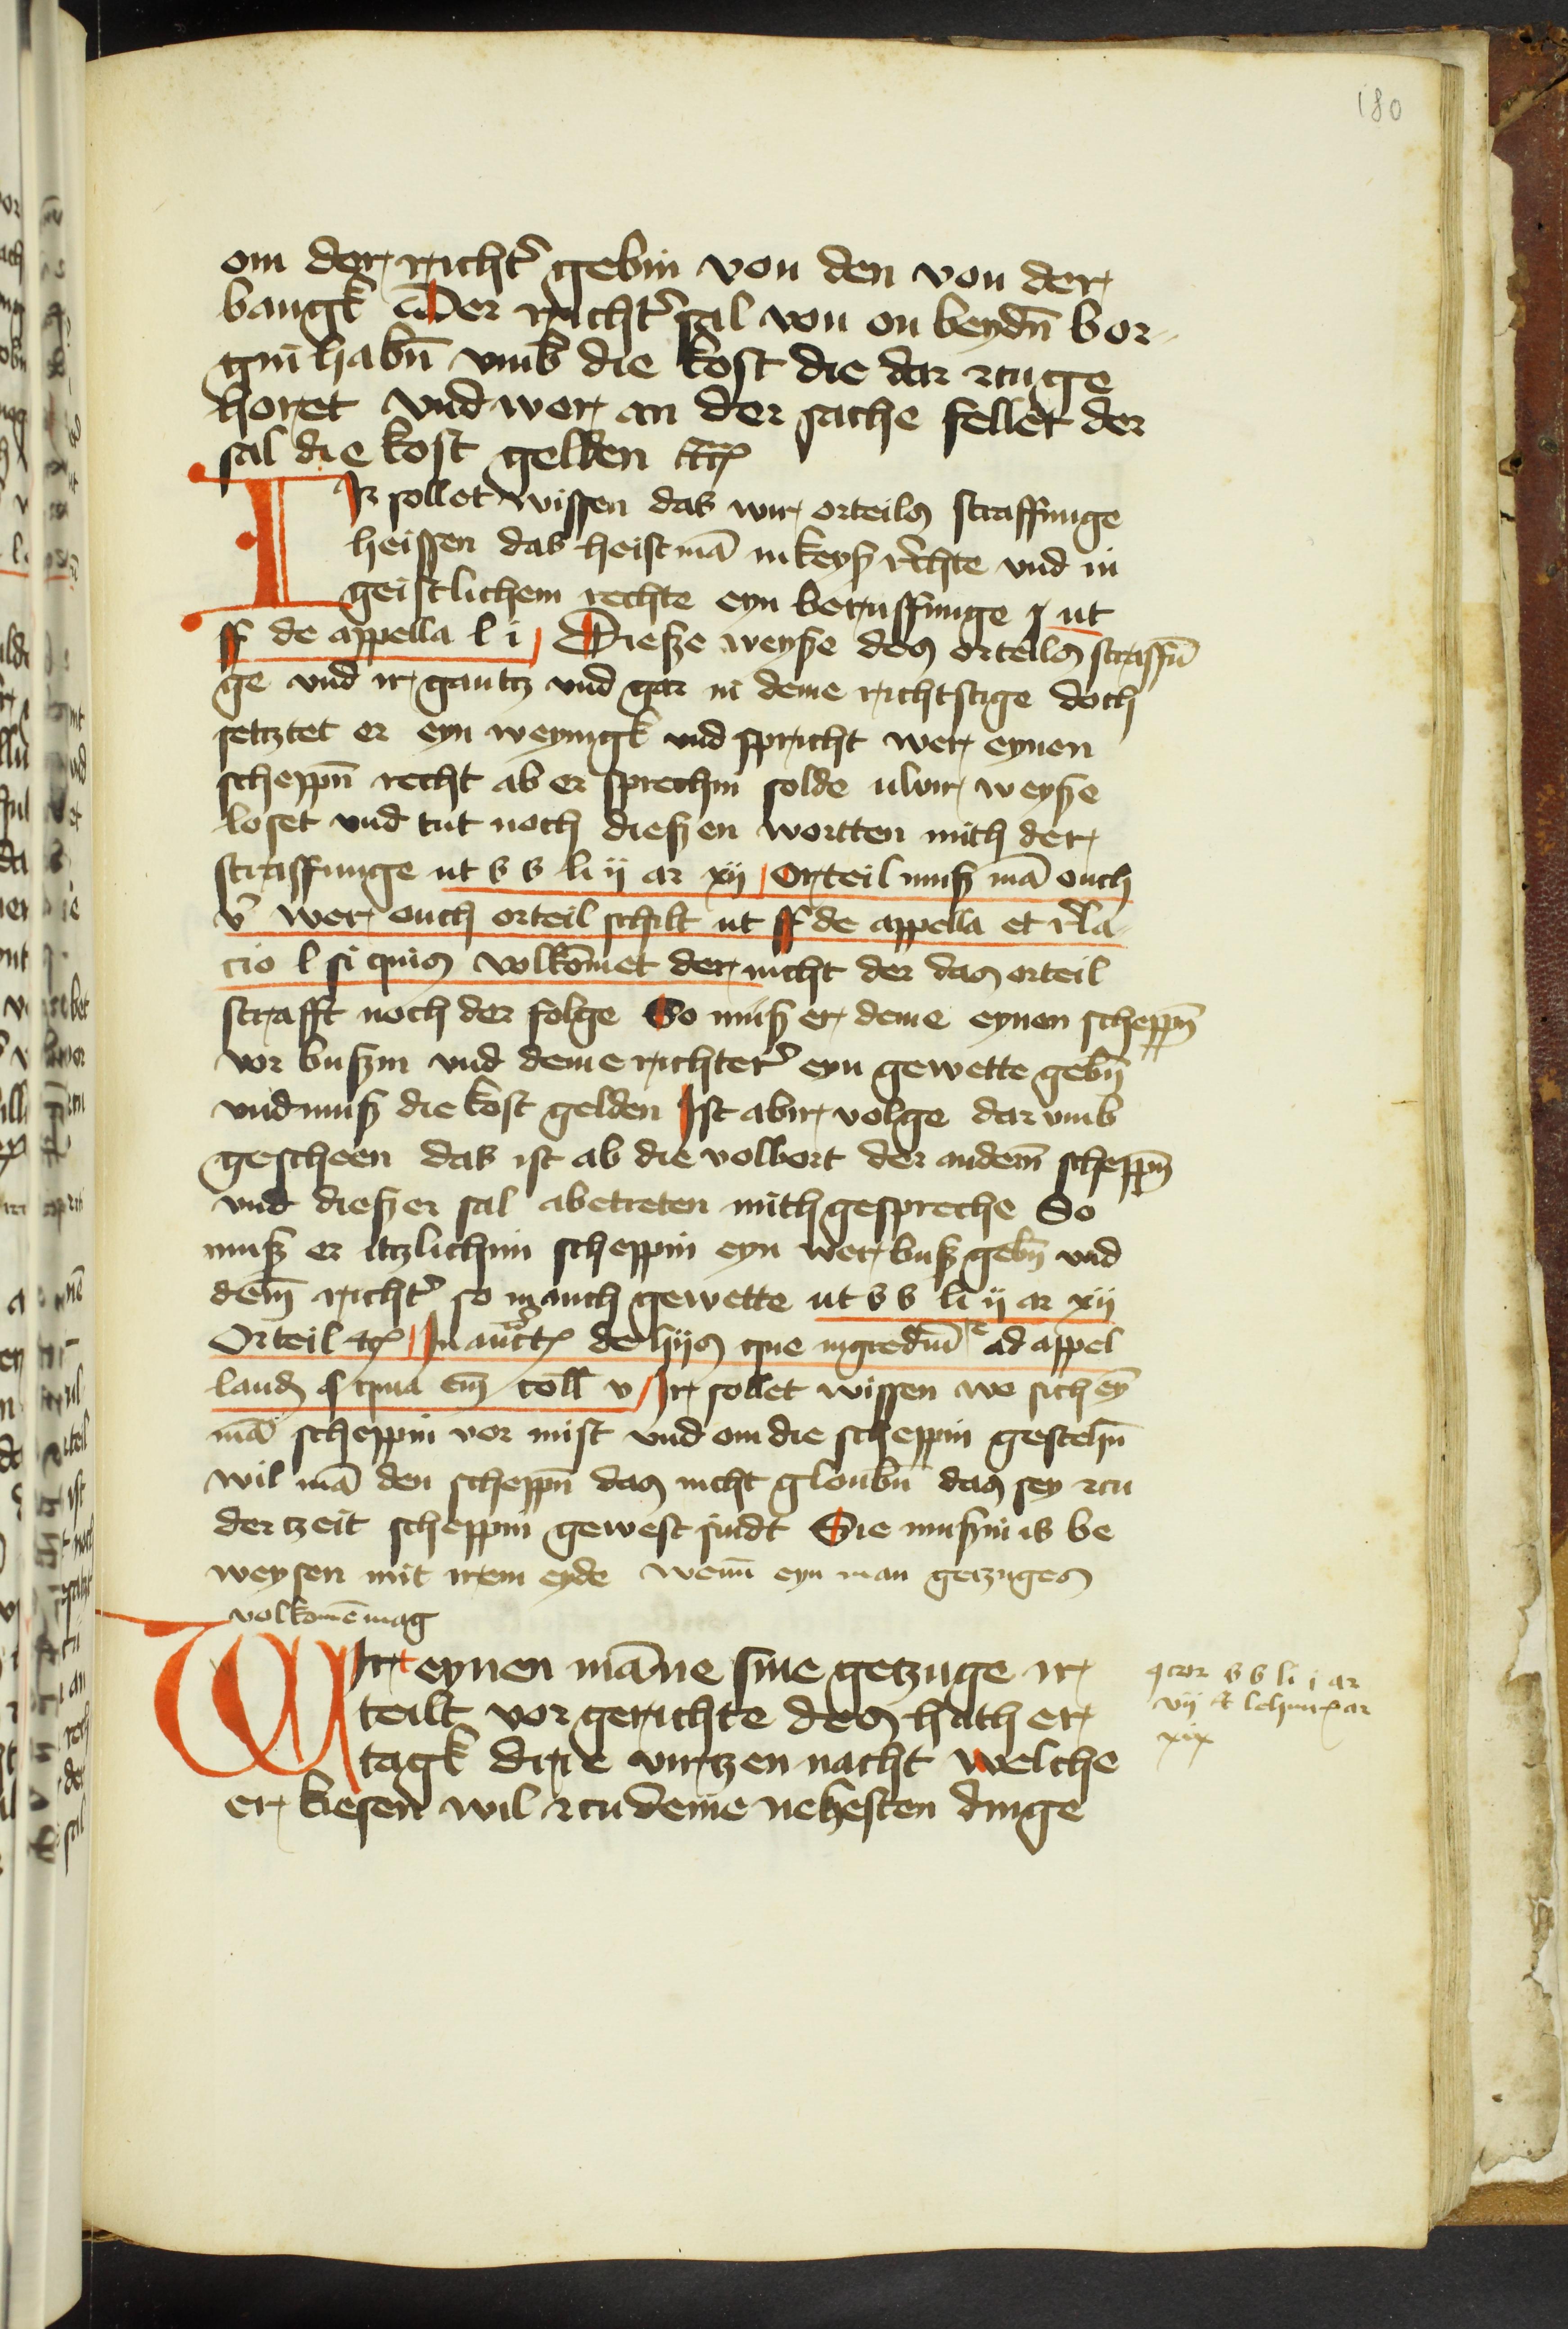 180
om der richt̉ gebin von den von der
bangk un̄ Der richt̉ sal von on beydn̄ bor-
gin habn̄ vmb die kost die dar zcu ge
horet vnd wer an der sache fellet der
sal die kost gelden
Ir sollet wissen das wir orteils straffunge
heissen das heist mā in keyß rechte vnd in
geistlichem rechte eyn beruffunge ut
ff de appella l i Dieße weyße des orteils straffū
ge vnd ir gantz vnd gar in deme richtstige doch
setztet er eyn weyngk vnd spricht wer eynen
scheppn̄ recht ab er sprechin solde weyße
loset vnd tut noch dießen wortten mith der
straffunge ut s s li ij ar xij Orteil muß mā ouch
v̉ wer ouch orteil schilt ut ff de appella et r̄la
cio l si quis volkōmet der nicht der das orteil
strafft noch der folge So muß er deme eynen scheppn̄
vor bußin vnd deme richter̉ eyn gewette gebn̄
vnd muß die kost gelden Ist abir volge dar vmb
gescheen das ist ab die volbort der andern̄ scheppn̄
vnd dießer sal abetreten mith gespreche So
muß er itzlichim scheppin eyn wer buß gebn̄ vnd
dem̄ richt̉ so manch gewette ut s s li ij ar xij
Orteil de hijs que ingrediū ad appel
land coll v Ir sollet wissen wo sich eȳ
mā scheppin vor mist vnd om die scheppin gesteln̄
wil mā den scheppn̄ das nicht gloubn̄ das sey zcu
der tzeit scheppin gewest sindt Sie mußin is be
weysen mit irem eyde wenn̄ eyn man getzuges
volkomē mag
Wirt eynen māne sine getzuge ir
teilt vor gerichte des hath er
tagk drie virtzen nacht welche
er kiesen wil zcu deme nehesten dinge
s s li j ar
vij ar
xix